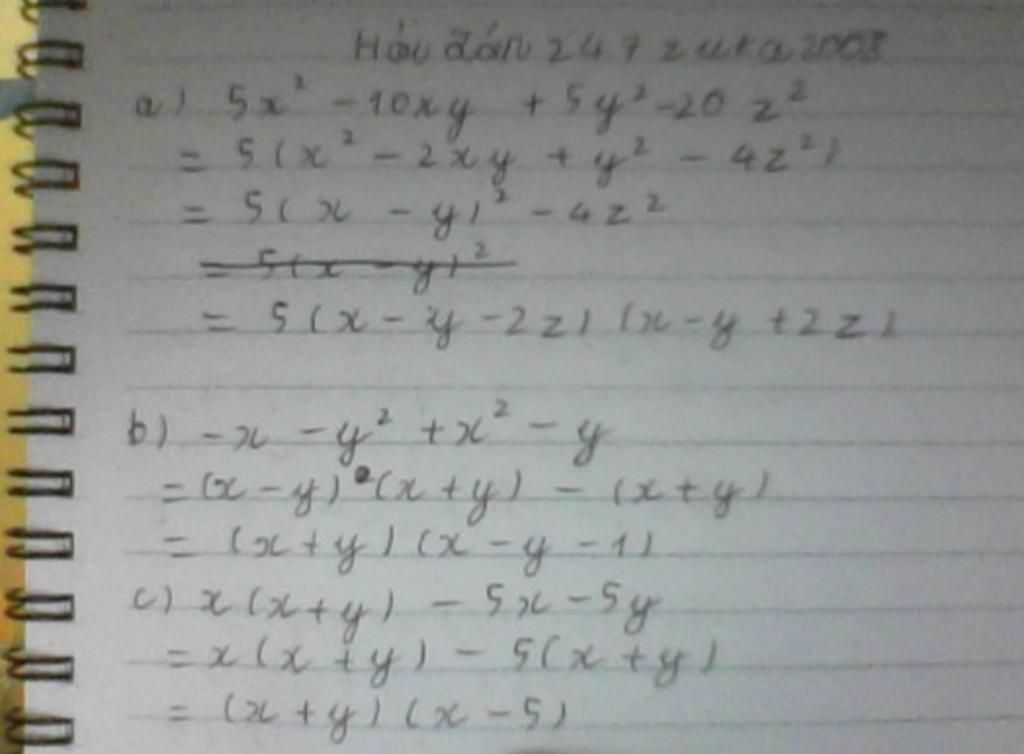 Hỏi đán 247 zuka2008
a) 5x² - 10xy + 5y² - 20 z²
= 5(x² - 2xy + y² - 4z²)
= 5(x - y)² - 4z²
= 5(x - y)²
= 5(x - y - 2z) (x - y + 2z)
b) -x - y² + x² - y
= (x - y) (x + y) - (x + y)
= (x + y) (x - y - 1)
c) x(x + y) - 5x - 5y
= x(x + y) - 5(x + y)
= (x + y) (x - 5)